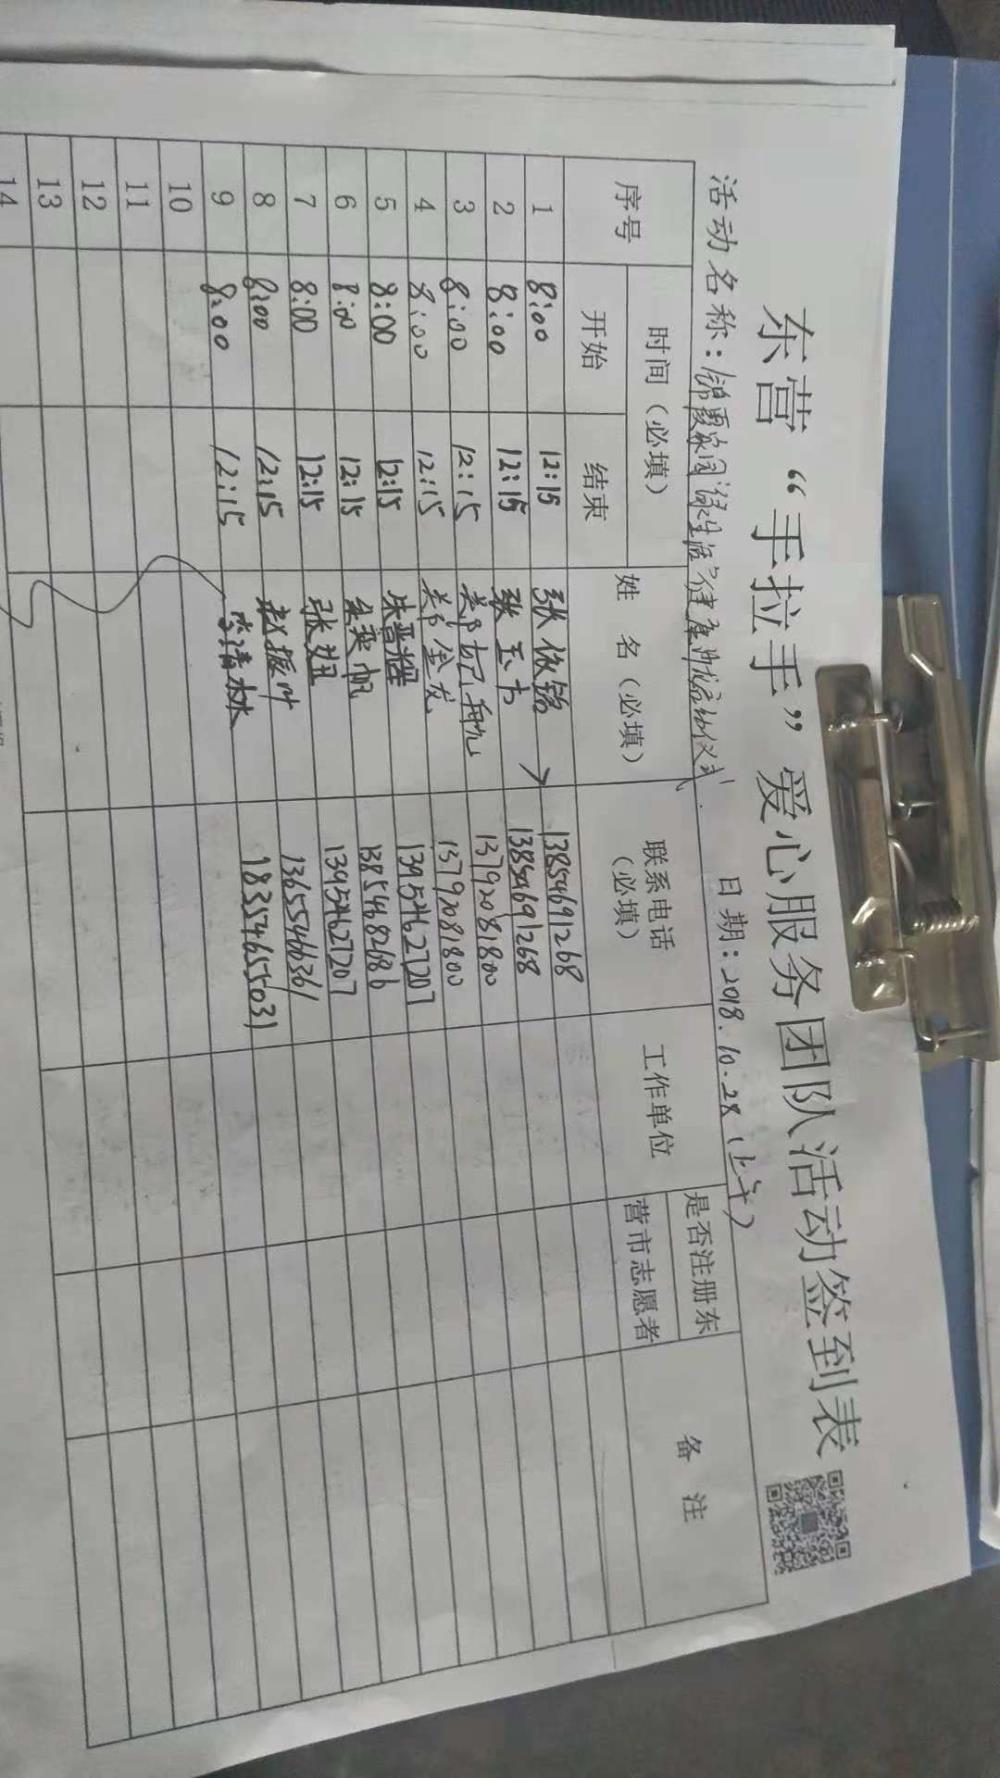 东营“手拉手”爱心服务团队活动签到表
活动名称：锦霞家园 绿生活 健康 启动仪式 日期：2018.10.28（上午）
序号 时间（必填） 姓 名（必填） 联系电话（必填） 工作单位 是否注册东营市志愿者 备 注
开始 结束
1 8:00 12:15 张依铭 13854691268
2 8:00 12:15 张玉 13854691268
3 8:00 12:15 13792081800
4 8:00 12:15 郑金发 13792081800
5 8:00 12:15 朱晋耀 13954627207
6 8:00 12:15 13854682686
7 8:00 12:15 张妞 13954627207
8 8:00 12:15 赵振叶 13655466361
9 8:00 12:15 李清林 18354655031
10
11
12
13
14